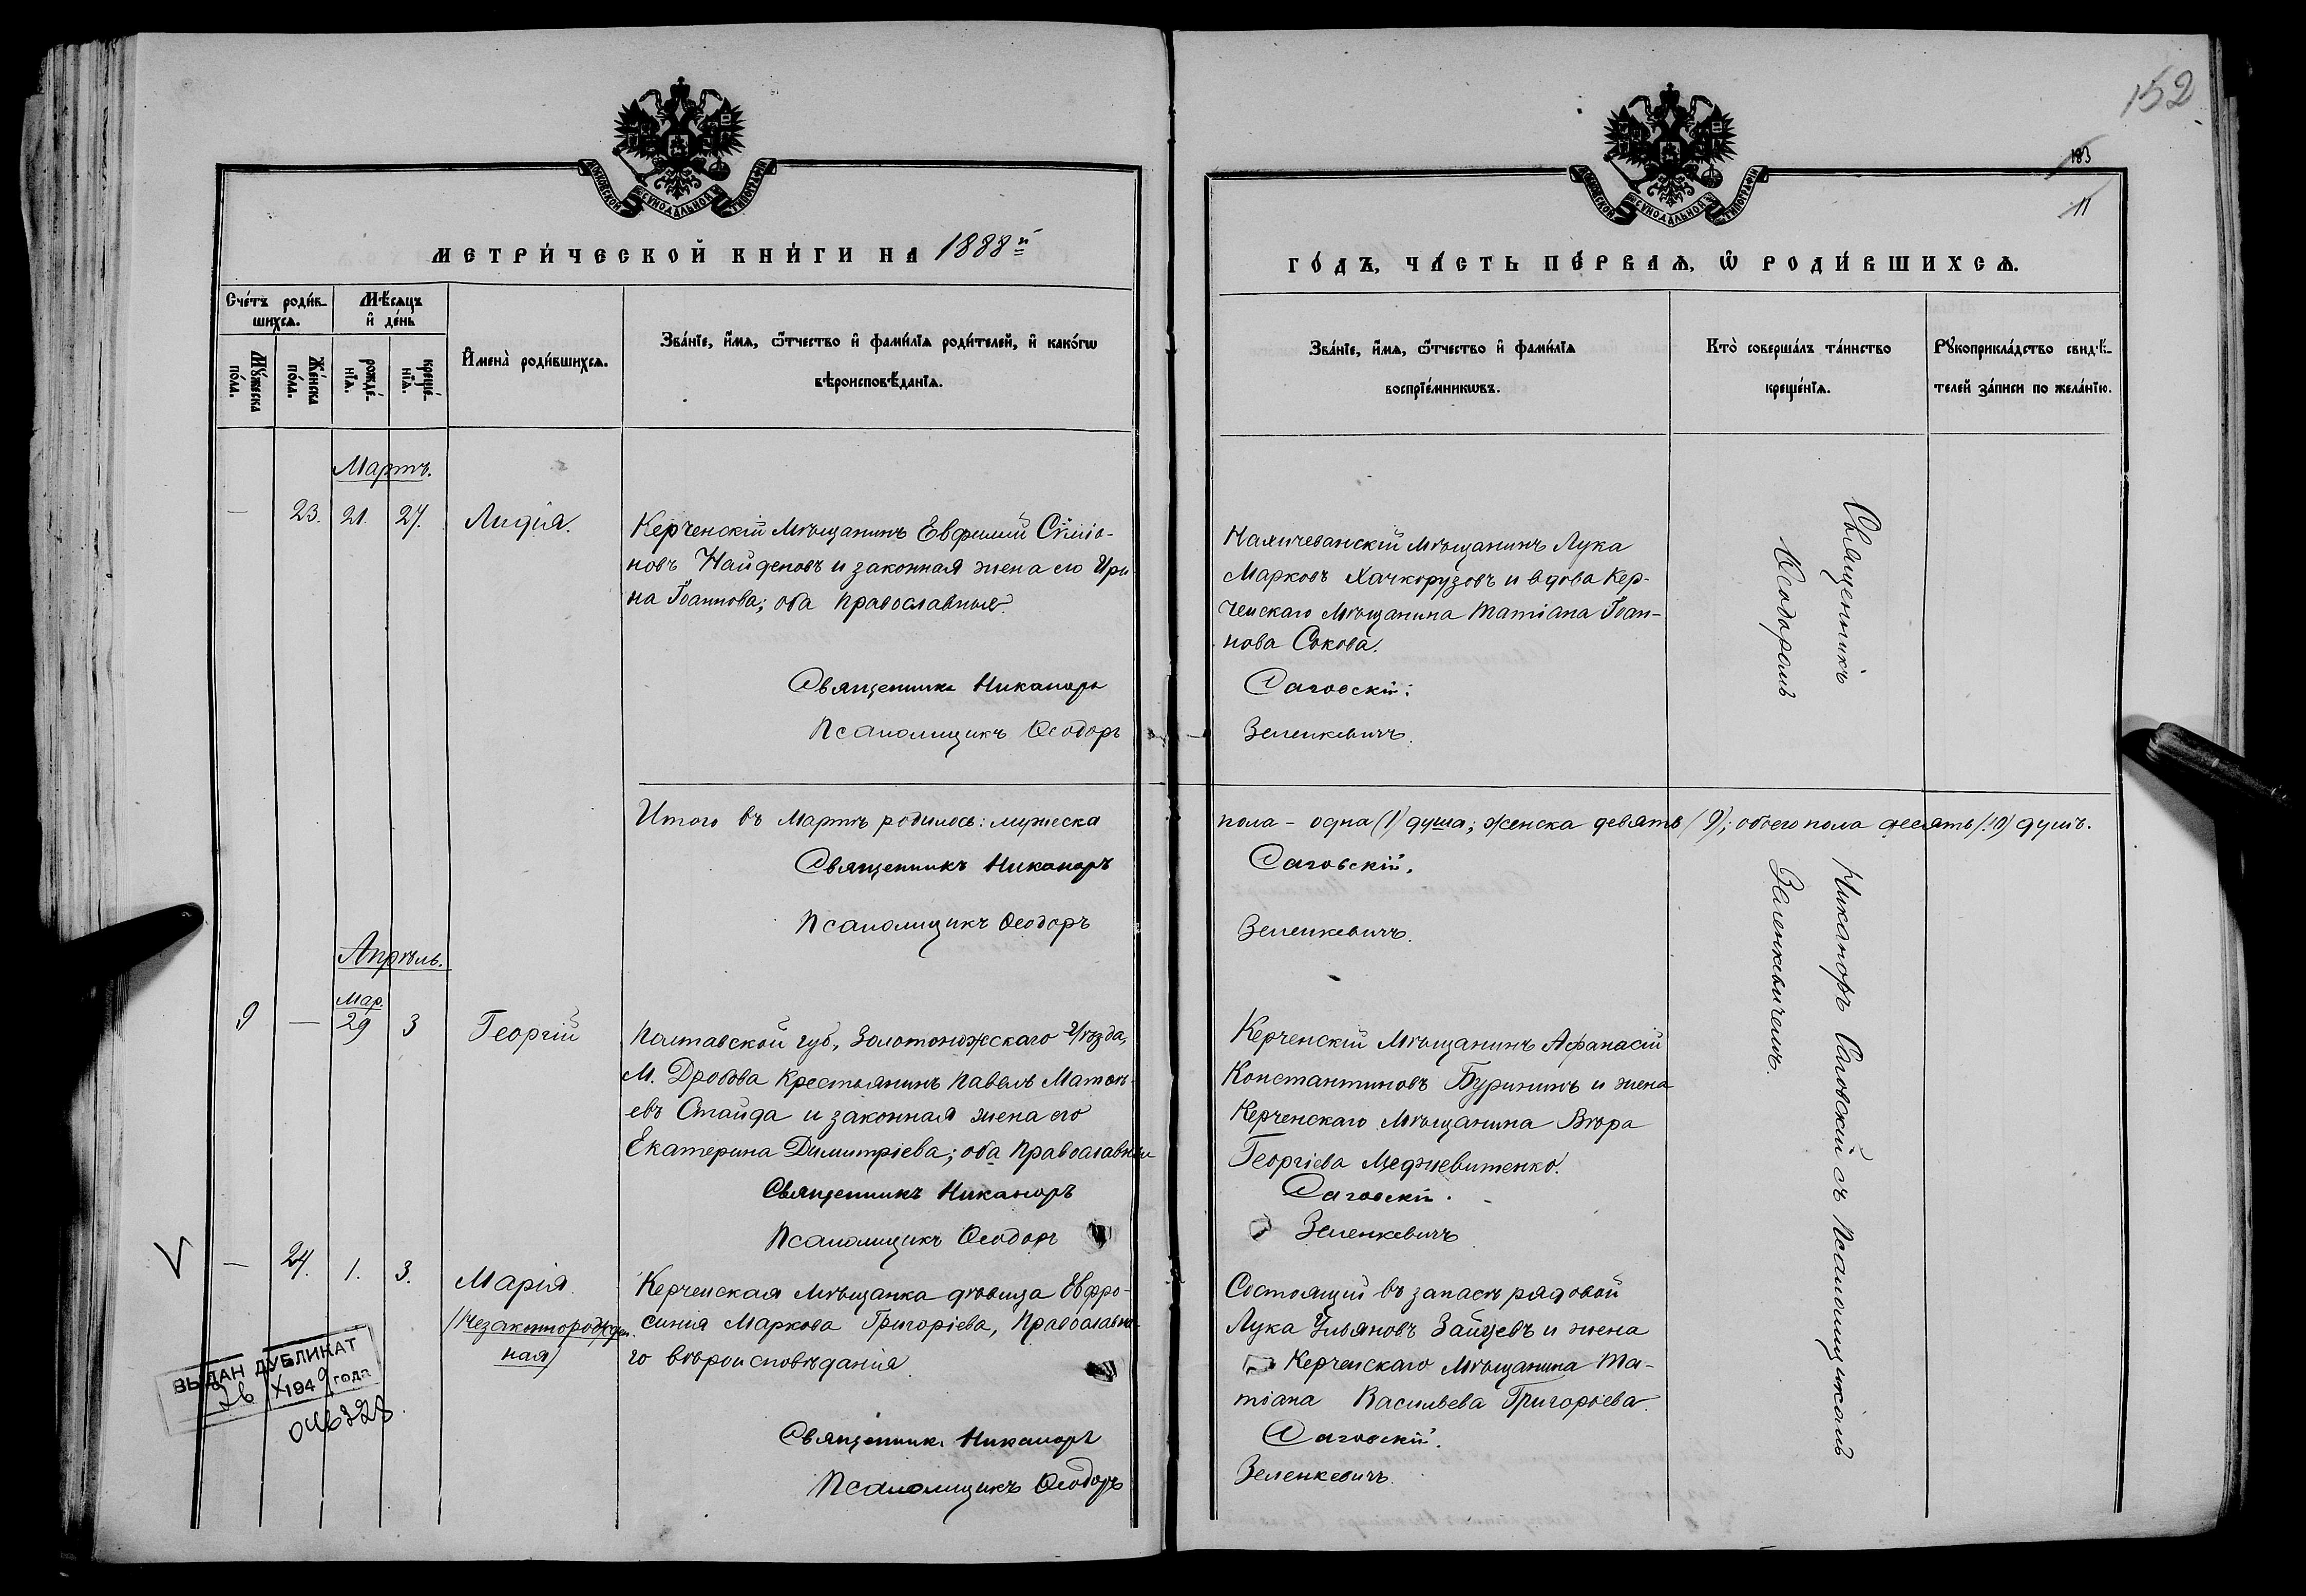 152
183
11
МОСКОВСКОЙ СѴНОДАЛЬНОЙ ТИПОГРАФІИ
МОСКОВСКОЙ СѴНОДАЛЬНОЙ ТИПОГРАФІИ
МЕТРИ́ЧЕСКОЙ КНИ́ГИ НА 1888й
ГО́ДЪ, ЧА́СТЬ ПЕ́РВАѦ, Ѽ РОДИ́ВШИХСѦ.
Сче́тъ роди́в-
шихсѧ.
Мѣ́сѧцъ
и҆ де́нь
Мꙋ́жеска
по́ла.
Же́нска
по́ла.
рожде́-
нїѧ.
креще́-
нїѧ.
И҆мена̀ роди́вшихсѧ.
Зва́нїе, и҆́мѧ, ѻ҆́тчество и҆ фами́лїѧ роди́телей, и҆ како́гѡ
вѣроисповѣ́данїѧ.
Зва́нїе, и҆́мѧ, ѻ҆́тчество и҆ фами́лїѧ
воспрїе́мникѡвъ.
Кто̀ соверша́лъ та́инство
креще́нїѧ.
Рꙋкоприкла́дство свидѣ́-
телей за́писи по жела́нїю.
Мартъ.
— 23. 21. 27. Лидія.
Керченскій мѣщанинъ Евфимій Симео-
новъ Найденовъ и законная жена его Ири-
на Іоаннова; оба православные.
Священникъ Никаноръ
Псаломщикъ Ѳеодоръ
Нахичеванскій мѣщанинъ Лука
Марковъ Хачкорузовъ и вдова Кер-
ченскаго мѣщанина Татіана Іоан-
нова Сокова.
Саговскій.
Зеленкевичъ.
Священникъ
Ѳеодоромъ
Итого въ Мартѣ родилось: мужеска
пола – одна (1) душа; женска девять (9); обоего пола десять (10) душъ.
Священникъ Никаноръ
Псаломщикъ Ѳеодоръ
Саговскій.
Зеленкевичъ.
Никаноръ Саговскій съ Псаломщикомъ
Зеленкевичемъ.
Апрѣль.
Мар.
9 — 29 3 Георгій
Полтавской губ., Золотоножскаго уѣзда,
М. Дробова крестьянинъ Павелъ Матѳѣ-
евъ Стайда и законная жена его
Екатерина Димитріева; оба православные
Священникъ Никаноръ
Псаломщикъ Ѳеодоръ
Керченскій мѣщанинъ Афанасій
Константиновъ Буринъ и жена
Керченскаго мѣщанина Вѣра
Георгіева
Саговскій.
Зеленкевичъ
— 24. 1. 3. Марія
(Незаконнорожден-
ная)
Керченская мѣщанка дѣвица Евфро-
синія Маркова Григоріева, православна-
го вѣроисповѣданія.
Священникъ Никаноръ
Псаломщикъ Ѳеодоръ
Состоящій въ запасѣ рядовой
Лука Ульяновъ Зайцевъ и жена
Керченскаго мѣщанина Та-
тіана Васильева Григорьева.
Саговскій.
Зеленкевичъ.
ВЫДАН ДУБЛИКАТ
26 X 1949 года
046328